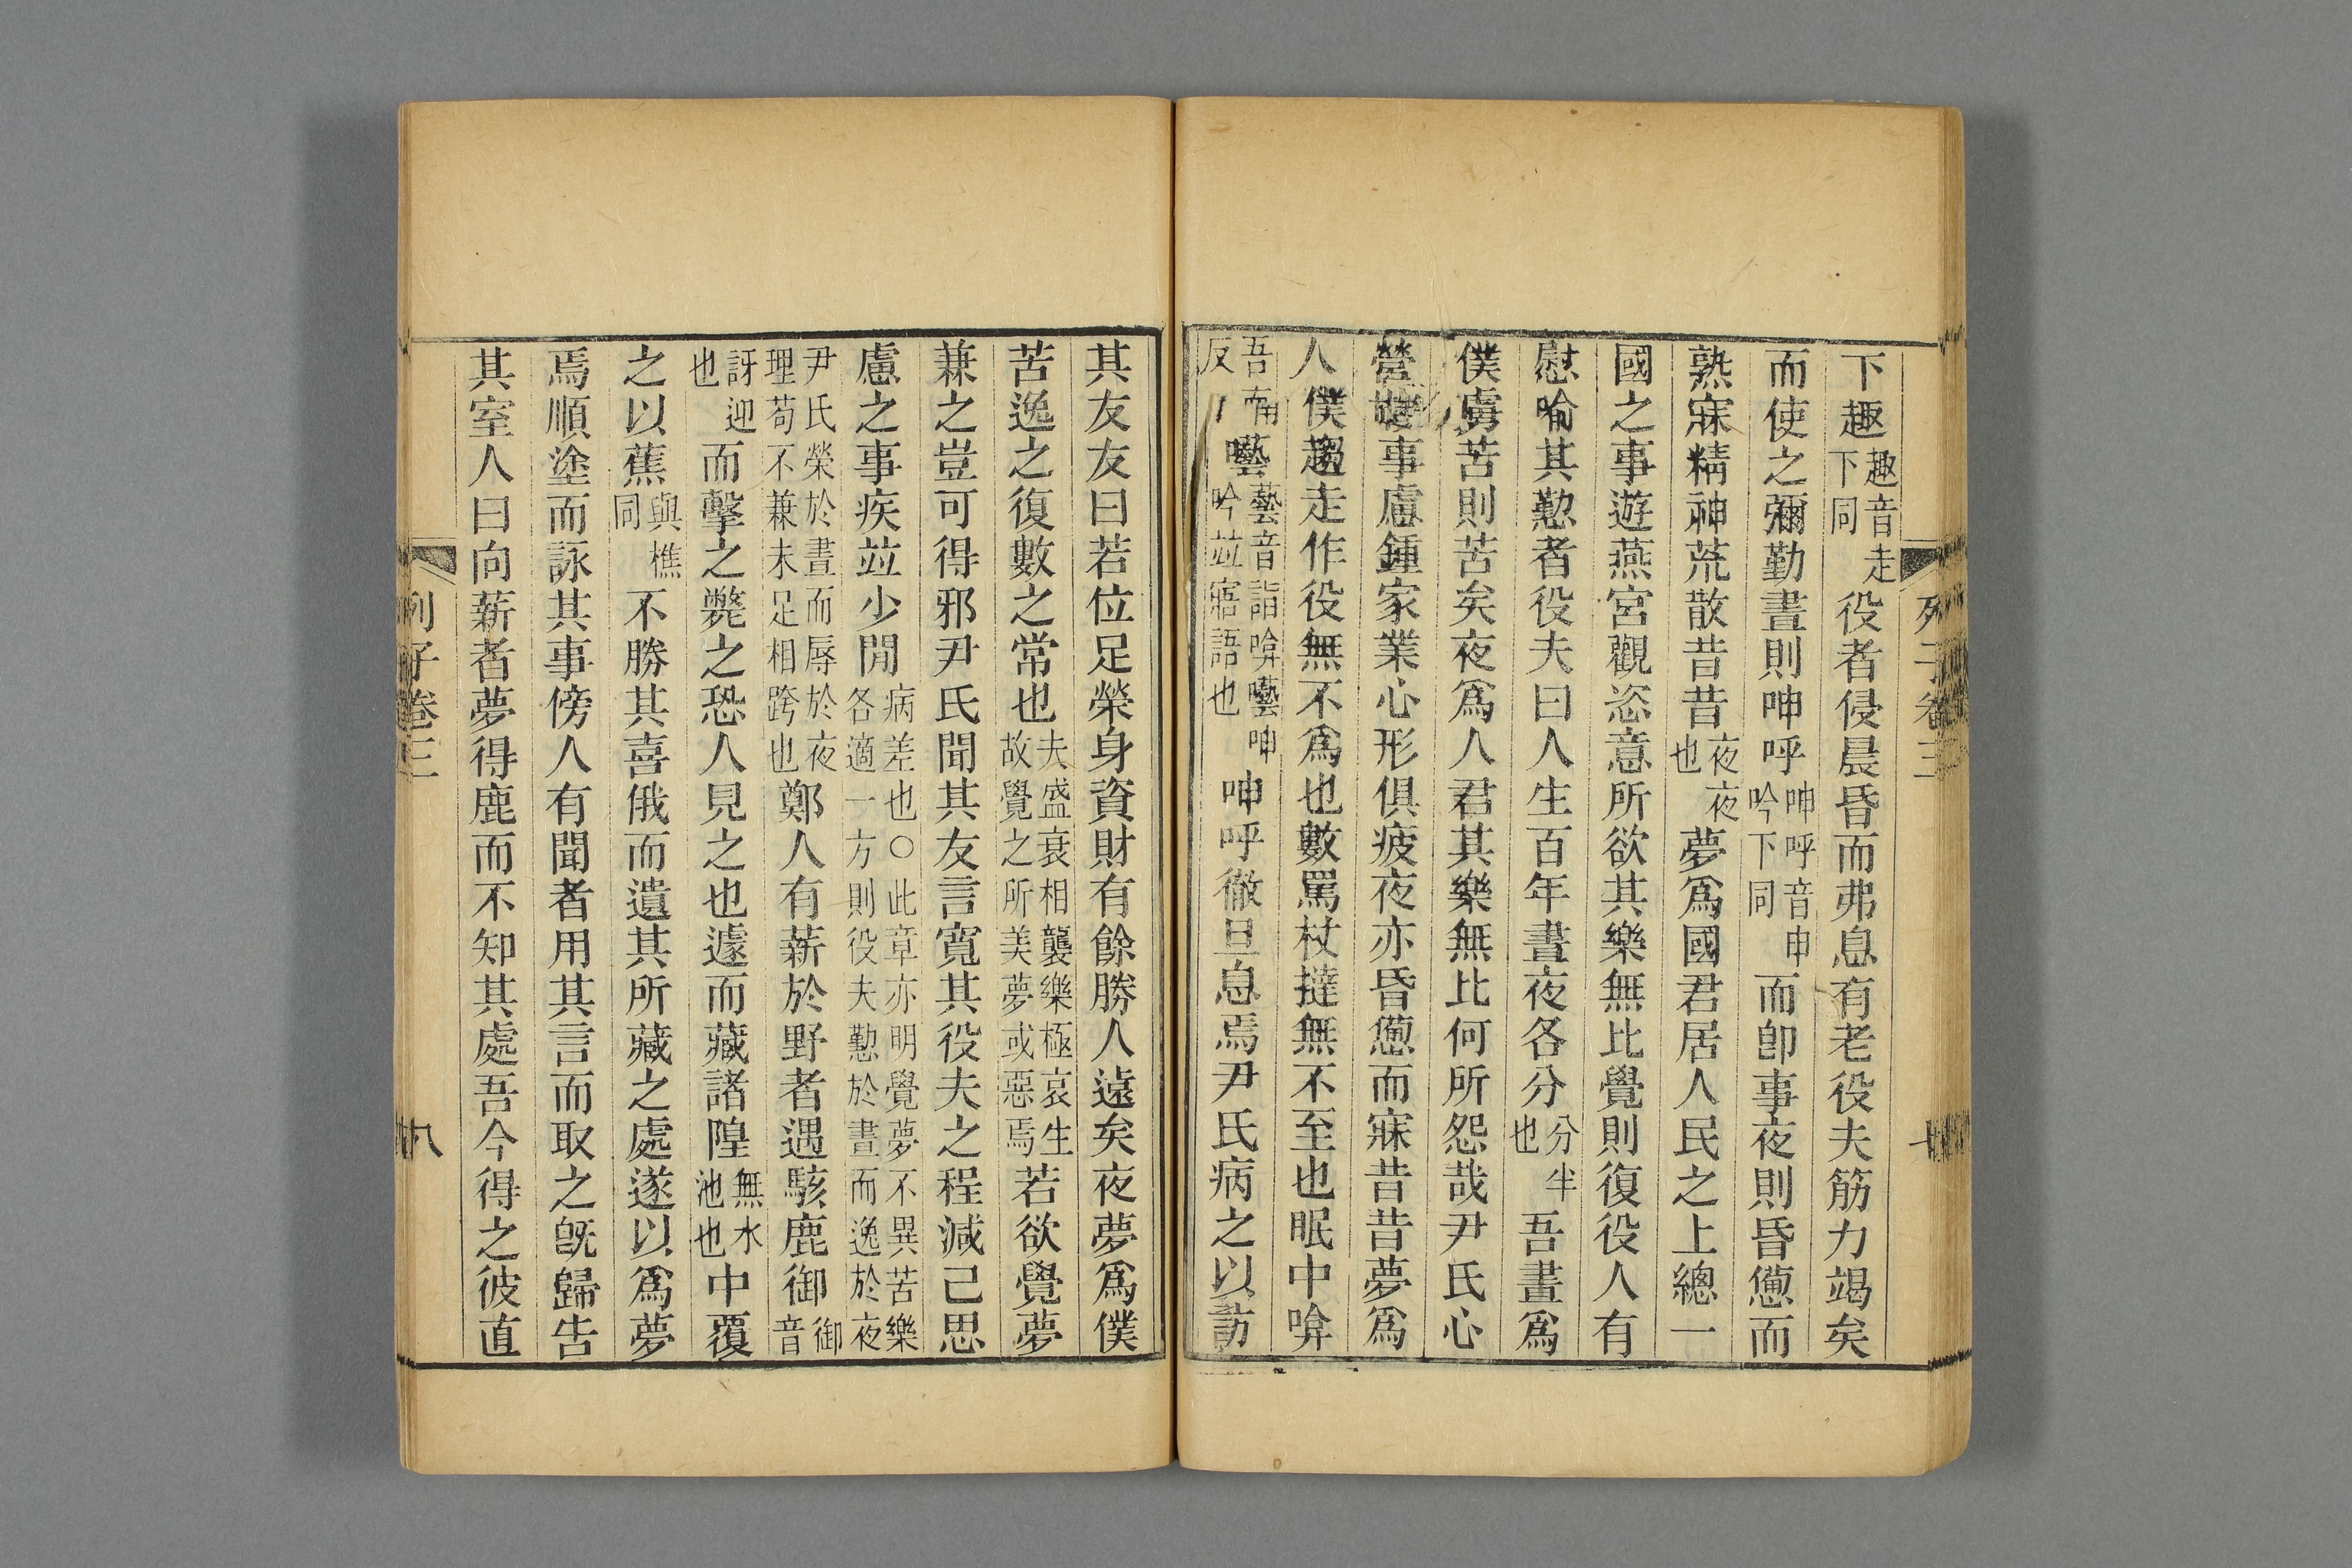 下趣趣音走下同役者侵晨昏而弗息有老役夫筋力竭矣
而使之彌勤晝則呻呼呻呼音申吟下同而卽事夜則昏憊而
熟寐精神荒散昔昔夜夜也夢爲國君居人民之上總一
國之事遊燕宮觀恣意所欲其樂無比覺則復役人有
慰喻其懃者役夫曰人生百年晝夜各分分半也吾晝爲
僕虜苦則苦矣夜爲人君其樂無比何所怨哉尹氏心
營事慮鍾家業心形俱疲夜亦昏憊而寐昔昔夢爲
人僕趨走作役無不爲也數罵杖撻無不至也眠中啽
吾南反囈藝音詣啽囈呻吟竝寤語也呻呼徹旦息焉尹氏病之以訪
其友友曰若位足榮身資財有餘勝人遠矣夜夢爲僕
苦逸之復數之常也夫盛衰相襲樂極哀生故覺之所美夢或惡焉若欲覺夢
兼之豈可得邪尹氏聞其友言寬其役夫之程減己思
慮之事疾竝少閒病差也○此章亦明覺夢不異苦樂各適一方則役夫懃於晝而逸於夜
尹氏榮於晝而辱於夜理苟不兼未足相跨也鄭人有薪於野者遇駭鹿御御音
訝迎也而擊之斃之恐人見之也遽而藏諸隍無水池也中覆
之以蕉與樵同不勝其喜俄而遺其所藏之處遂以爲夢
焉順塗而詠其事傍人有聞者用其言而取之旣歸告
其室人曰向薪者夢得鹿而不知其處吾今得之彼直
列子卷三
八